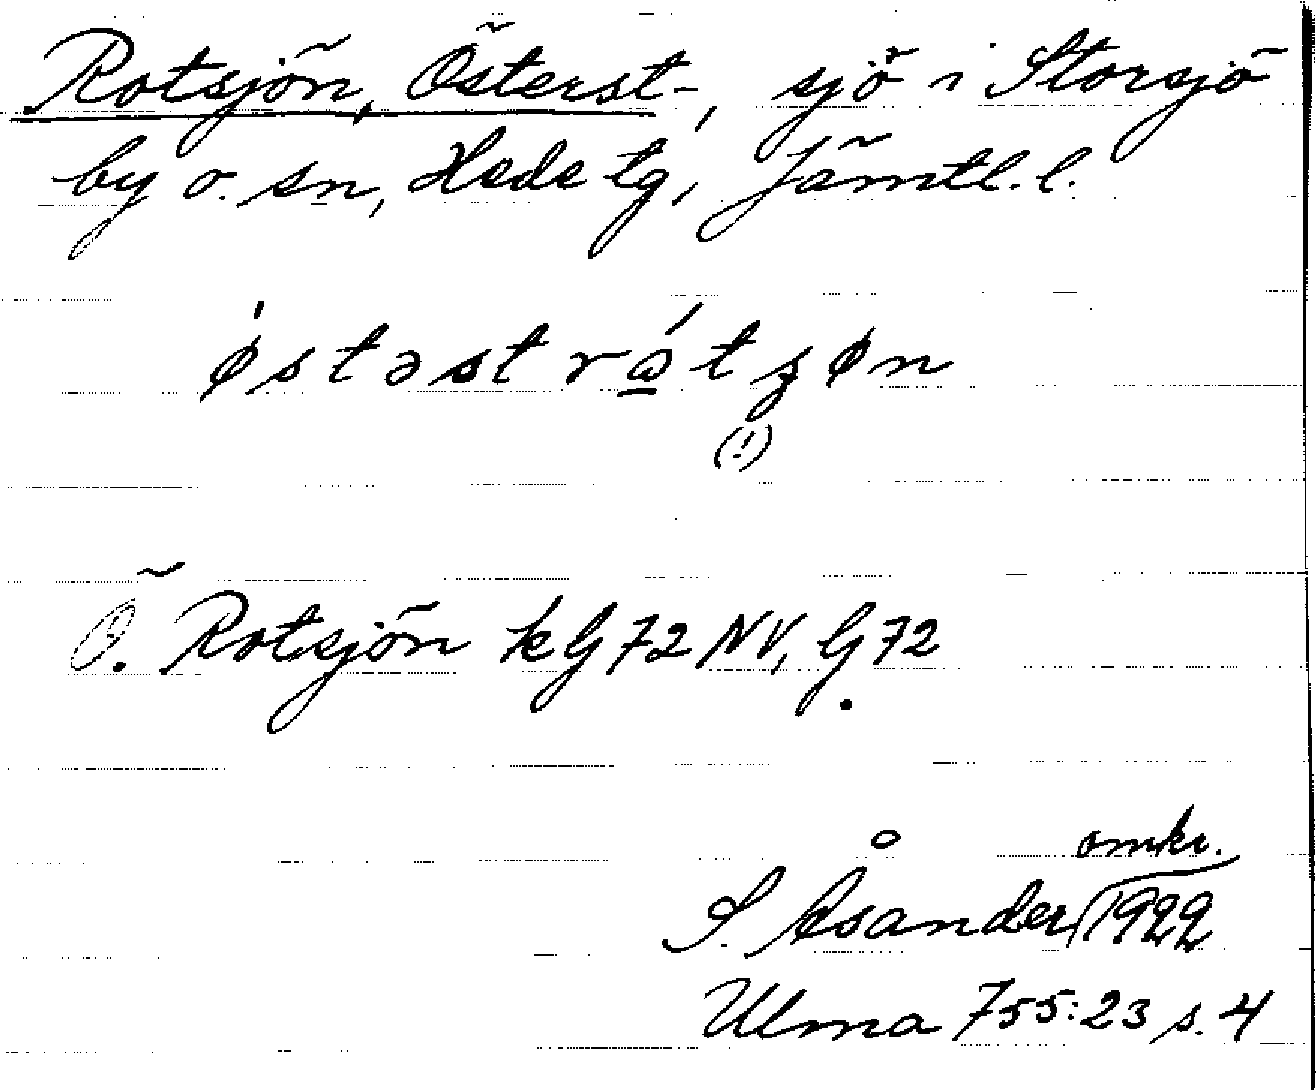 Rotsjön, Österst-, sjö i Storsjö
by o. sn, Hede tg, Jämtl. l.
ǿstəst rát ʒøn
(!)
Ö. Rotsjön kG72NV, G72
omkr.
S. Åsander 1922
Ulma 755:23 s. 4